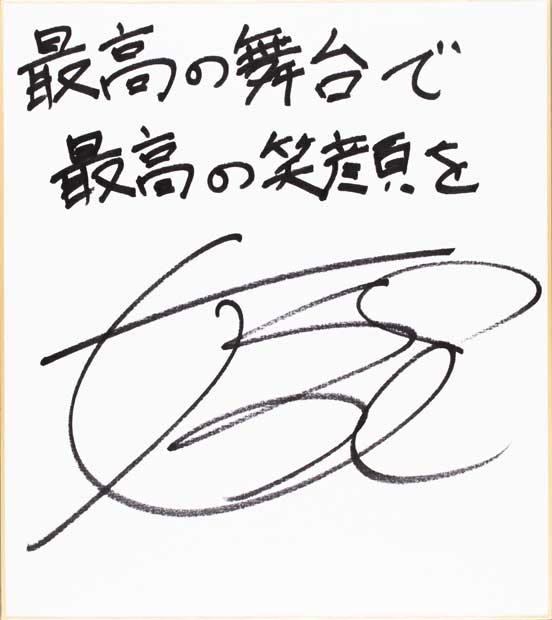 最高の舞台で
最高の笑顔を